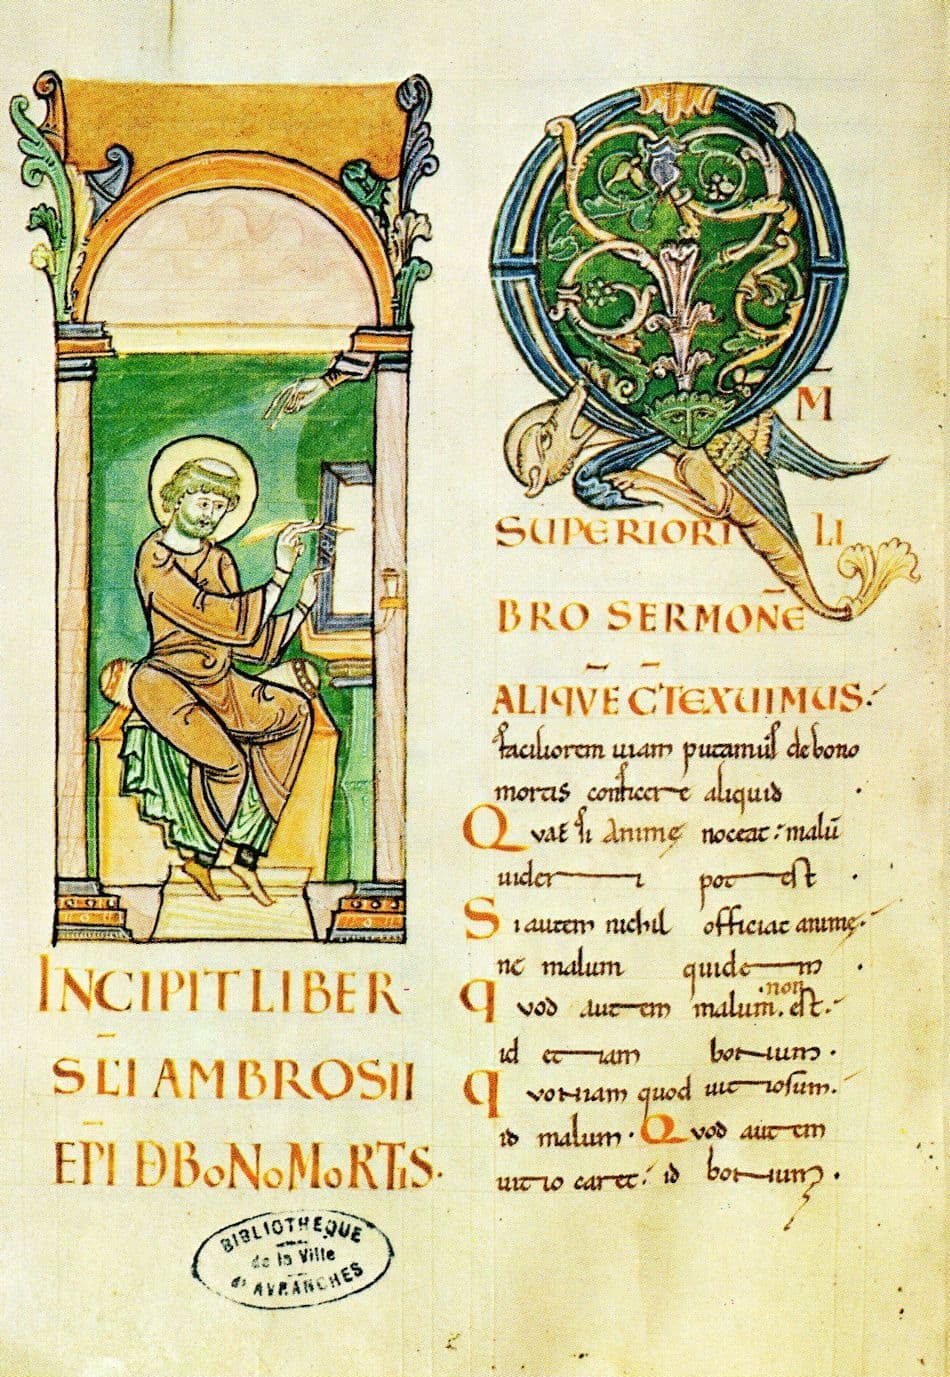 INCIPIT LIBER
SC̄I AMBROSII
EP̄I DE BONO MORTIS.
BIBLIOTHEQUE
de la Ville
d'AVRANCHES
QM̄
SUPERIORI LI
BRO SERMONĒ
ALIQVĒ C̄TEXUIMUS.
faciliorem uiam putamus de bono
mortis conficere aliquid
Quae si anime noceat: malū
uideri potest
Si autem nichil officiat anime.
ne malum quidem
.non
quod autem malum. est.
id etiam bonum.
quoniam quod uitiosum.
id malum. Quod autem
uitio caret: id bonum.